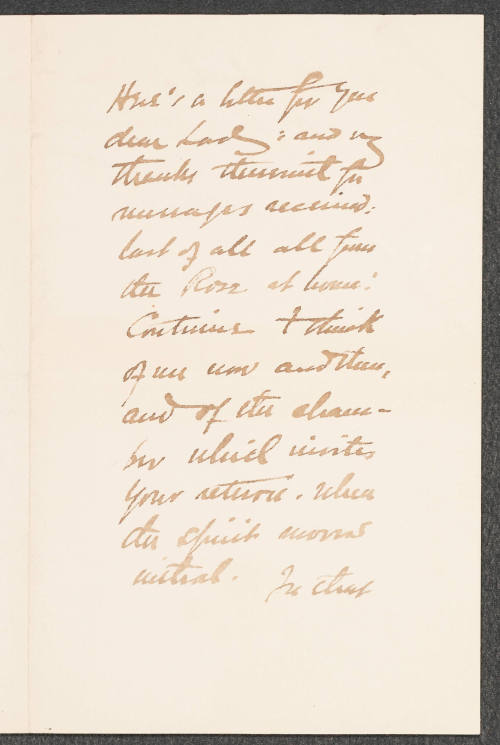 Here's a letter for you
dear Lady: and my
thanks therewith for
messages received:
last of all all from
the Rose at home!
Continue to think
of me now and then,
and of the cham-
ber which invites
your return. when
the spirit moves
In that